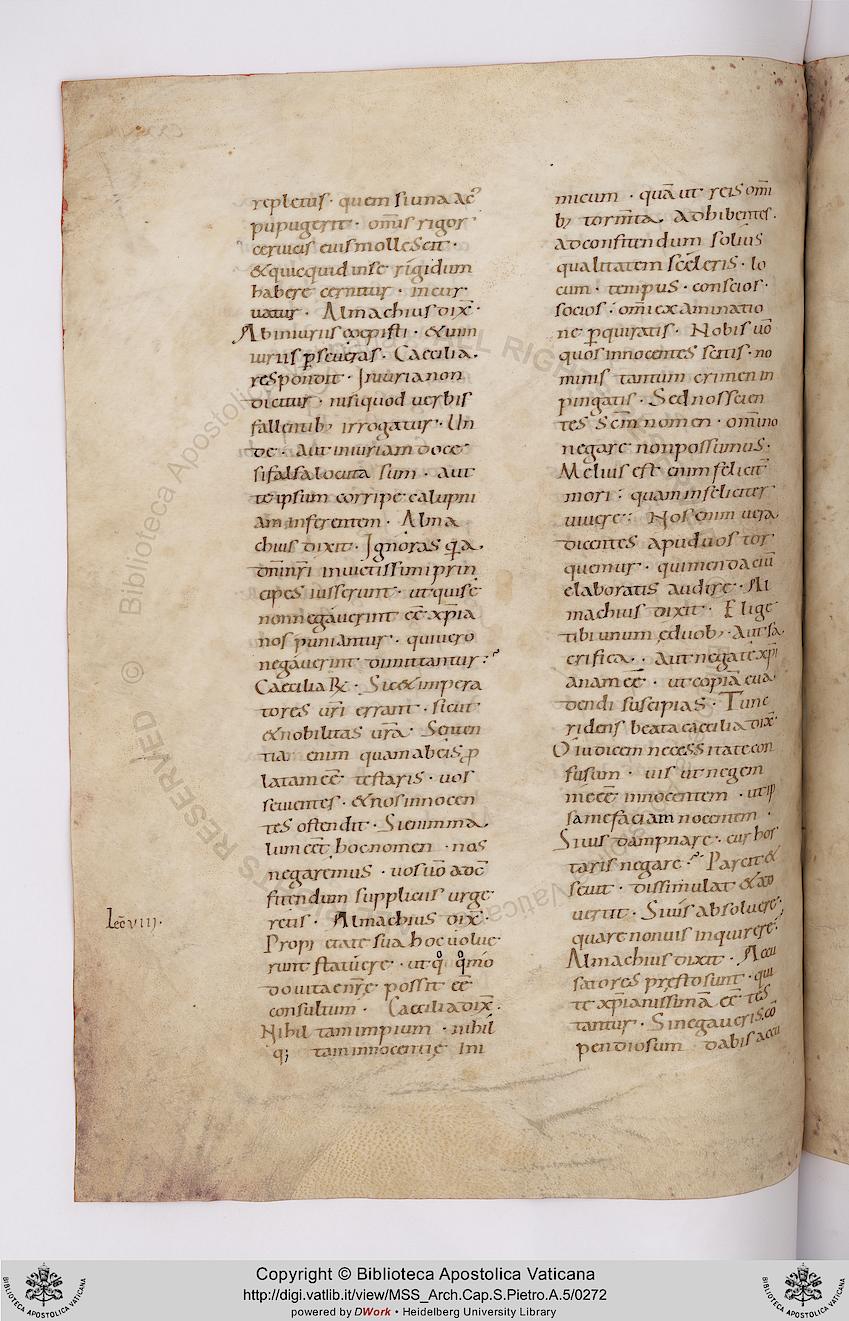 repletus · quem si una ac᷒
pupugerit · om̅is rigor
ceruicis eius mollescit ·
& quicquid in se rigidum
habere cernitur · incur
uatur · Almachius dix̅ ·
Ab iniuriis coepisti · & in in
iuriis ꝑseueras · Caecilia ·
respondit · Iniuria non
dicitur · nisi quod uerbis
fallentib; irrogatur · Un
de · aut iniuriam doce
si falsa locuta sum · aut
te ipsum corripe calupni
am inferentem · Alma
chius dixit · Ignoras q̅a ·
dn̅i nr̅i inuictissimi prin
cipes iusserunt · ut qui se
non negauerint ee̅ xp̅ia
nos puniantur · qui uero
negauerint dimittantur :
Caecilia R̅ · Sic & impera
tores ur̅i errant · sicut
& nobilitas ur̅a · Senten
tiam enim quam ab eis ꝓ
latam ee̅ testaris · uos
seuientes · & nos innocen
tes ostendit · Si enim ma
lum eet̅ hoc nomen · nos
negaremus · uos uo̅ ad c̅
fitendum suppliciis urge
retis · Almachius dix̅ ·
Lec̅ VIII ·
Propi etate sua hoc uolue
runt statuere · ut q̊ q̊mo̅
do uitae nr̅e possit ee̅
consultum · Caecilia dix̅ ·
Nihil tam impium · nihil
q; tam innocentię ini
micum · qua̅ ut reis om̅i
b; torm̅ta · adhibentes ·
ad confitendum solius
qualitatem sceleris · lo
cum · tempus · conscios ·
socios · om̅i examinatio
ne ꝑquiratis · Nobis uo̅
quos innocentes scitis · no
minis tantum crimen in
pingatis · Sed nos scien
tes sc̅m nomen · om̅ino
negare non possumus ·
Melius est enim felicit̅
mori : quam infeliciter
uiuere : Nos enim uera
dicentes apud uos tor
quemur · qui mendaciu̅
elaboratis audire · Al
machius dixit · Elige
tibi unum e duob; · Aut sa
crifica · aut negate xp̅i
anam ee̅ · ut copia̅ eua
dendi suscipias · Tunc
ridens beata caecilia dix̅
O iudicem necessitate con
fusum · uis ut negem
me ee̅ innocentem · ut ip
sa me faciam nocentem ·
Si uis dampnare · cur hor
taris negare · Parcit &
seuit · dissimulat & ad
uertit · Si uis absoluere ·
quare non uis inquirere ·
Almachius dixit · Accu
satores pręsto sunt · qui
te xp̅ianissima̅ ee̅ tes
tantur · Si negaueris · co̅
pendiosum dabis accu
Copyright © Biblioteca Apostolica Vaticana
http://digi.vatlib.it/view/MSS_Arch.Cap.S.Pietro.A.5/0272
powered by DWork • Heidelberg University Library